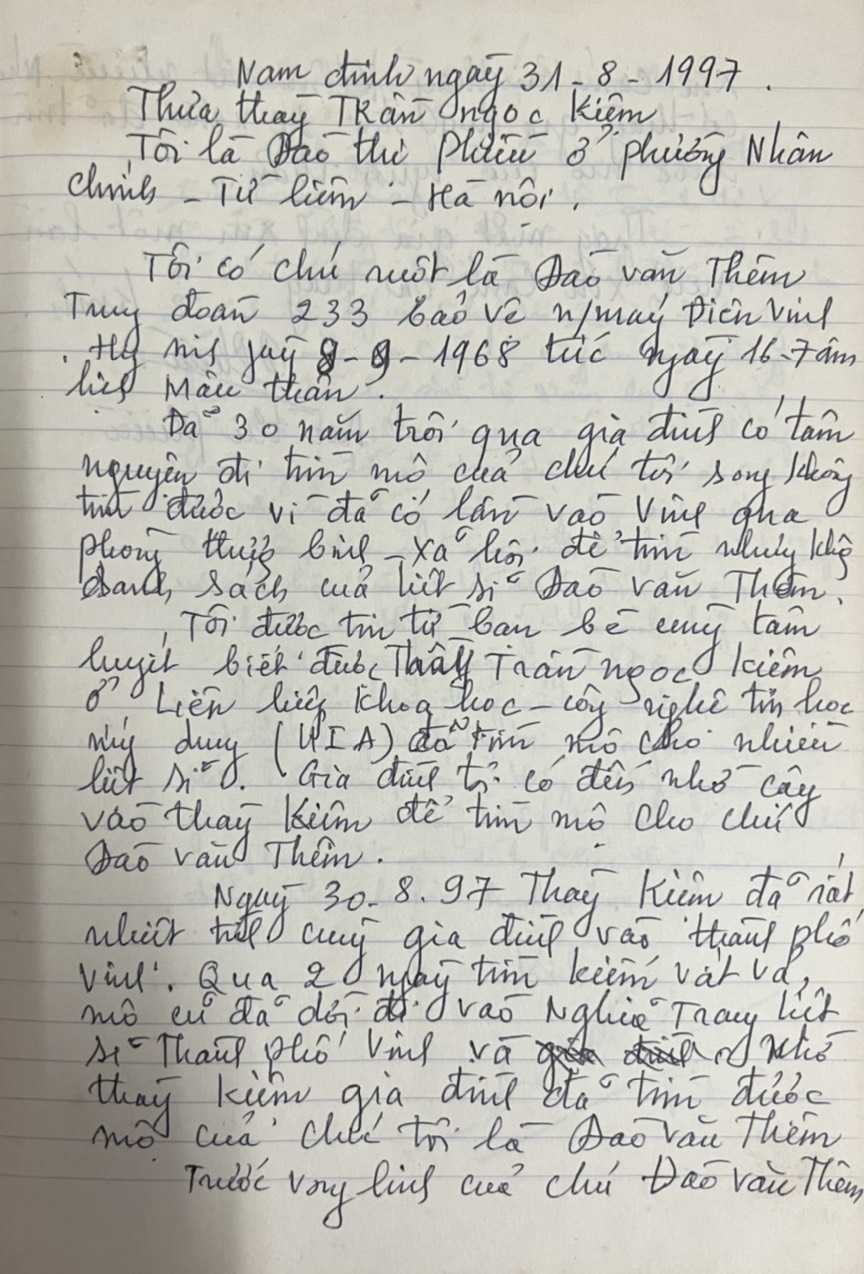 Nam định ngày 31-8-1997.
Thưa thầy Trần ngọc Kiêm
Tôi là Đào thị Phiếu ở phường Nhân
chính - Từ liêm - Hà nội.
Tôi có chú ruột là Đào văn Thêm
Trung đoàn 233 bảo vệ n/máy Điện Vinh
. Hy sinh ngày 8-9-1968 tức ngày 16-7 âm
lịch Mậu thân.
Đã 30 năm trôi qua gia đình có tâm
nguyện đi tìm mộ của chú tôi song không
tìm được vì đã có lần vào Vinh qua
phòng thương binh - xã hội để tìm nhưng không
danh sách của liệt sĩ Đào văn Thêm.
Tôi được tin từ bạn bè cùng tâm
huyết biết được Thầy Trần ngọc Kiêm
ở Liên hiệp khoa học - công nghệ tin học
ứng dụng (UIA) đã tìm mộ cho nhiều
liệt sĩ. Gia đình tôi có đến nhờ cậy
vào thầy Kiêm để tìm mộ cho chú
Đào văn Thêm.
Ngày 30.8.97 Thầy Kiêm đã rất
nhiệt tình cùng gia đình vào thành phố
Vinh. Qua 2 ngày tìm kiếm vất vả,
mộ cũ đã dời đi vào Nghĩa Trang liệt
sĩ Thành phố Vinh và nhờ
thầy Kiêm gia đình đã tìm được
mộ của chú tôi là Đào văn Thêm
Trước vong linh của chú Đào văn Thêm